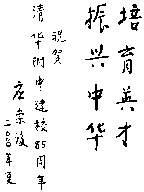 培育英才
振兴中华
祝贺
清华附中建校85周年
二〇〇〇年夏